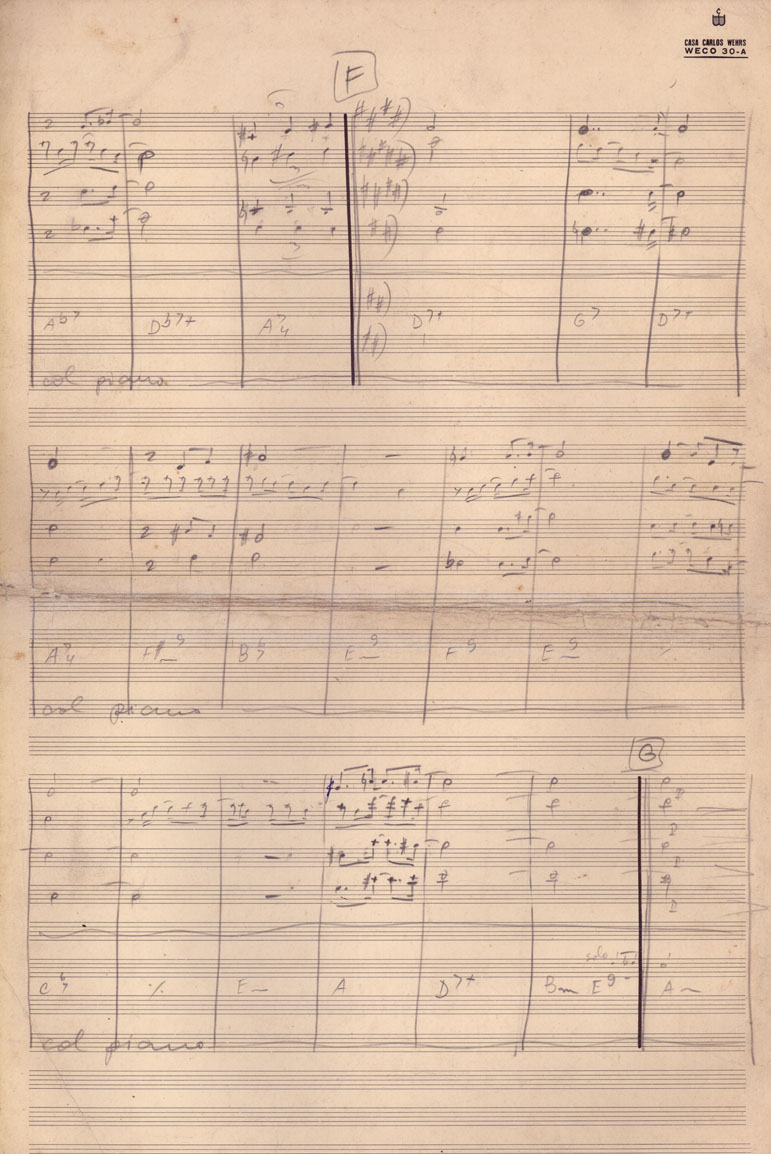 CASA CARLOS WEHRS
WECO 30-A
F
Ab7 Db7+ A74 D7+ G7 D7+
col piano
A74 B67 E–9 F9 E–9 ٪
col piano
G
solo
C67 ٪ E– A D7+ Bm E9– A–
col piano